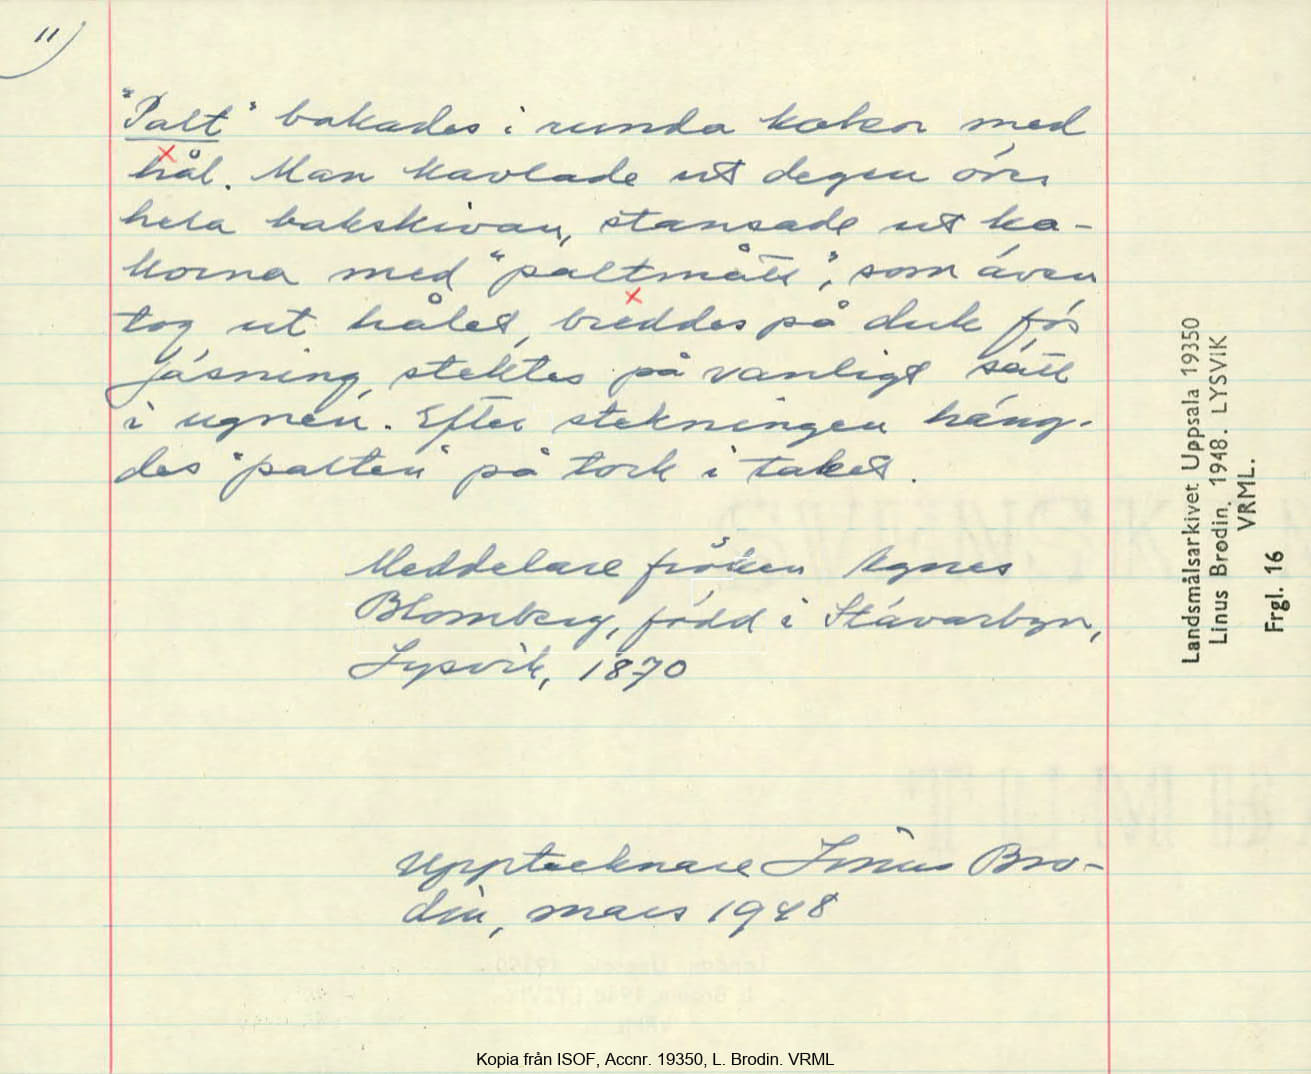 11
"Palt" bakades i runda kakor med
hål. Man kavlade ut degen över
hela bakskivan, stansade ut ka-
korna med "paltmått", som även
tog ut hålet, breddes på duk för
jäsning, stektes på vanligt sätt
i ugnen. Efter stekningen häng-
des "palten" på tork i taket.
Meddelare fröken Agnes
Blomberg, född i Stävarbyn,
Lysvik, 1870
Upptecknare Linus Bro-
din, mars 1948
Landsmålsarkivet Uppsala 19350
Linus Brodin. 1948. LYSVIK
VRML.
Frgl. 16
Kopia från ISOF, Accnr. 19350, L. Brodin. VRML